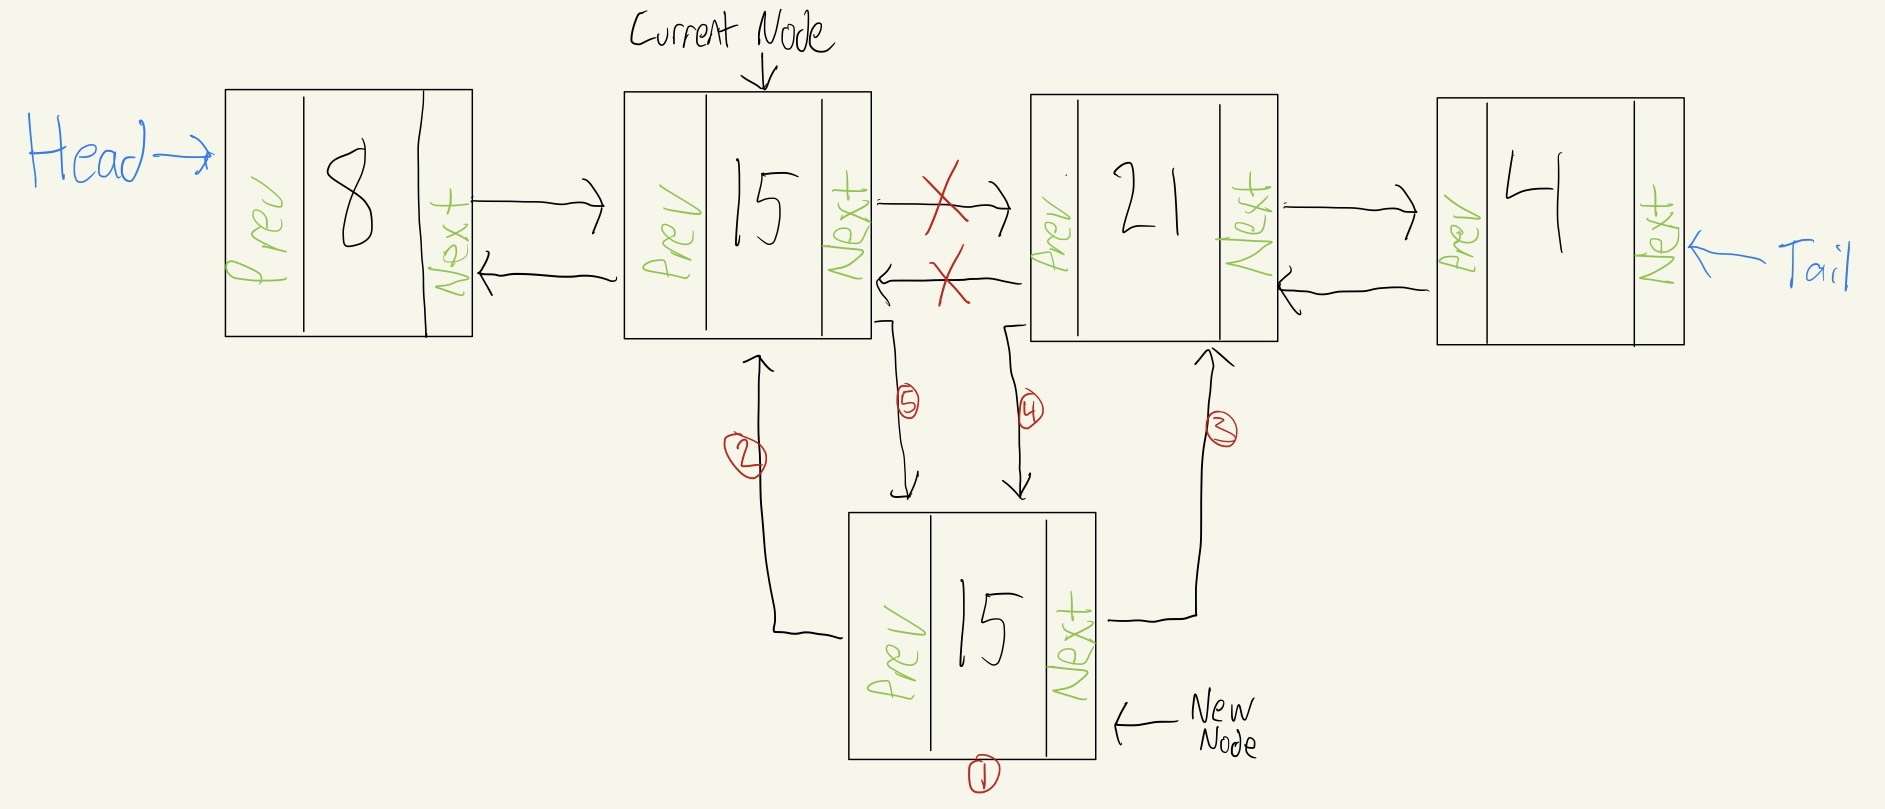 Current Node
Head
Prev
8
Next
Prev
15
Next
Prev
21
Next
Prev
4
Next
Tail
5
4
2
3
Prev
15
Next
New
Node
1